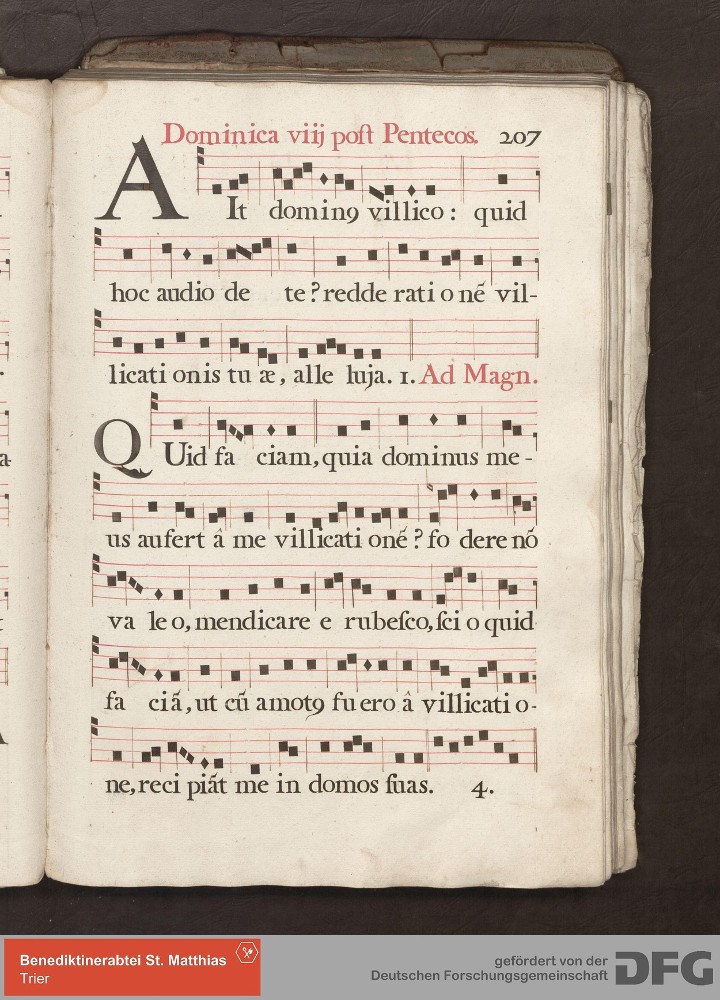 Dominica viij poſt Pentecos. 207
AIt domin9 villico: quid
hoc audio de te? redde rati o né vil-
licati onis tu æ, alle luja. 1. Ad Magn.
QUid fa ciam, quia dominus me-
us aufert â me villicati oné? fo dere nõ
va leo, mendicare e rubeſco, ſci o quid
fa ciã, ut cũ amot9 fu ero â villicati o-
ne, reci piãt me in domos ſuas. 4.
Benediktinerabtei St. Matthias
Trier
gefördert von der
Deutschen Forschungsgemeinschaft DFG